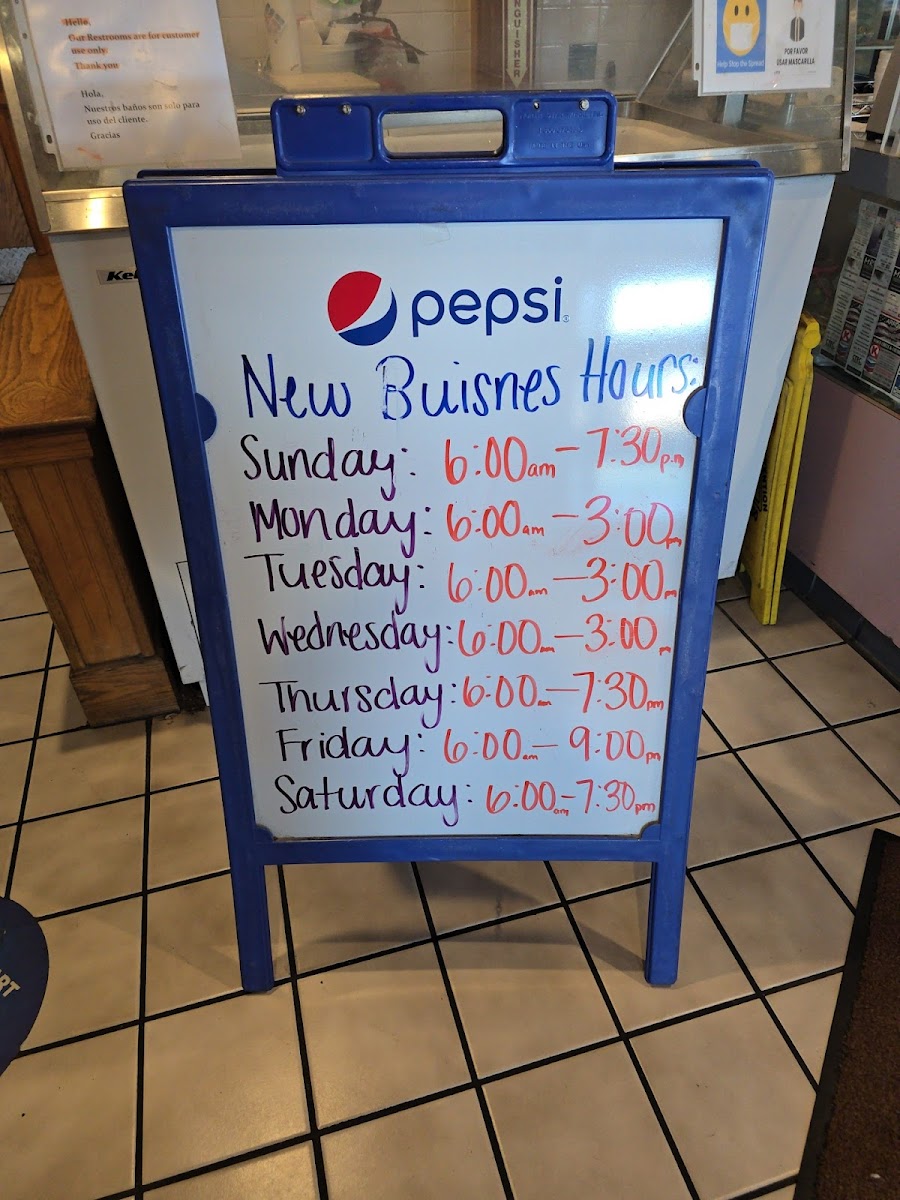 Hello,
Our Restrooms are for customer
use only.
Thank you
Hola,
Nuestros baños son solo para
uso del cliente.
Gracias
Help Stop the Spread!
POR FAVOR
USAR MASCARILLA
Kel
pepsi
New Buisnes Hours:
Sunday: 6:00am - 7:30p.m
Monday: 6:00am - 3:00pm
Tuesday: 6:00am - 3:00pm
Wednesday: 6:00am - 3:00pm
Thursday: 6:00am - 7:30pm
Friday: 6:00am - 9:00pm
Saturday: 6:00am - 7:30pm